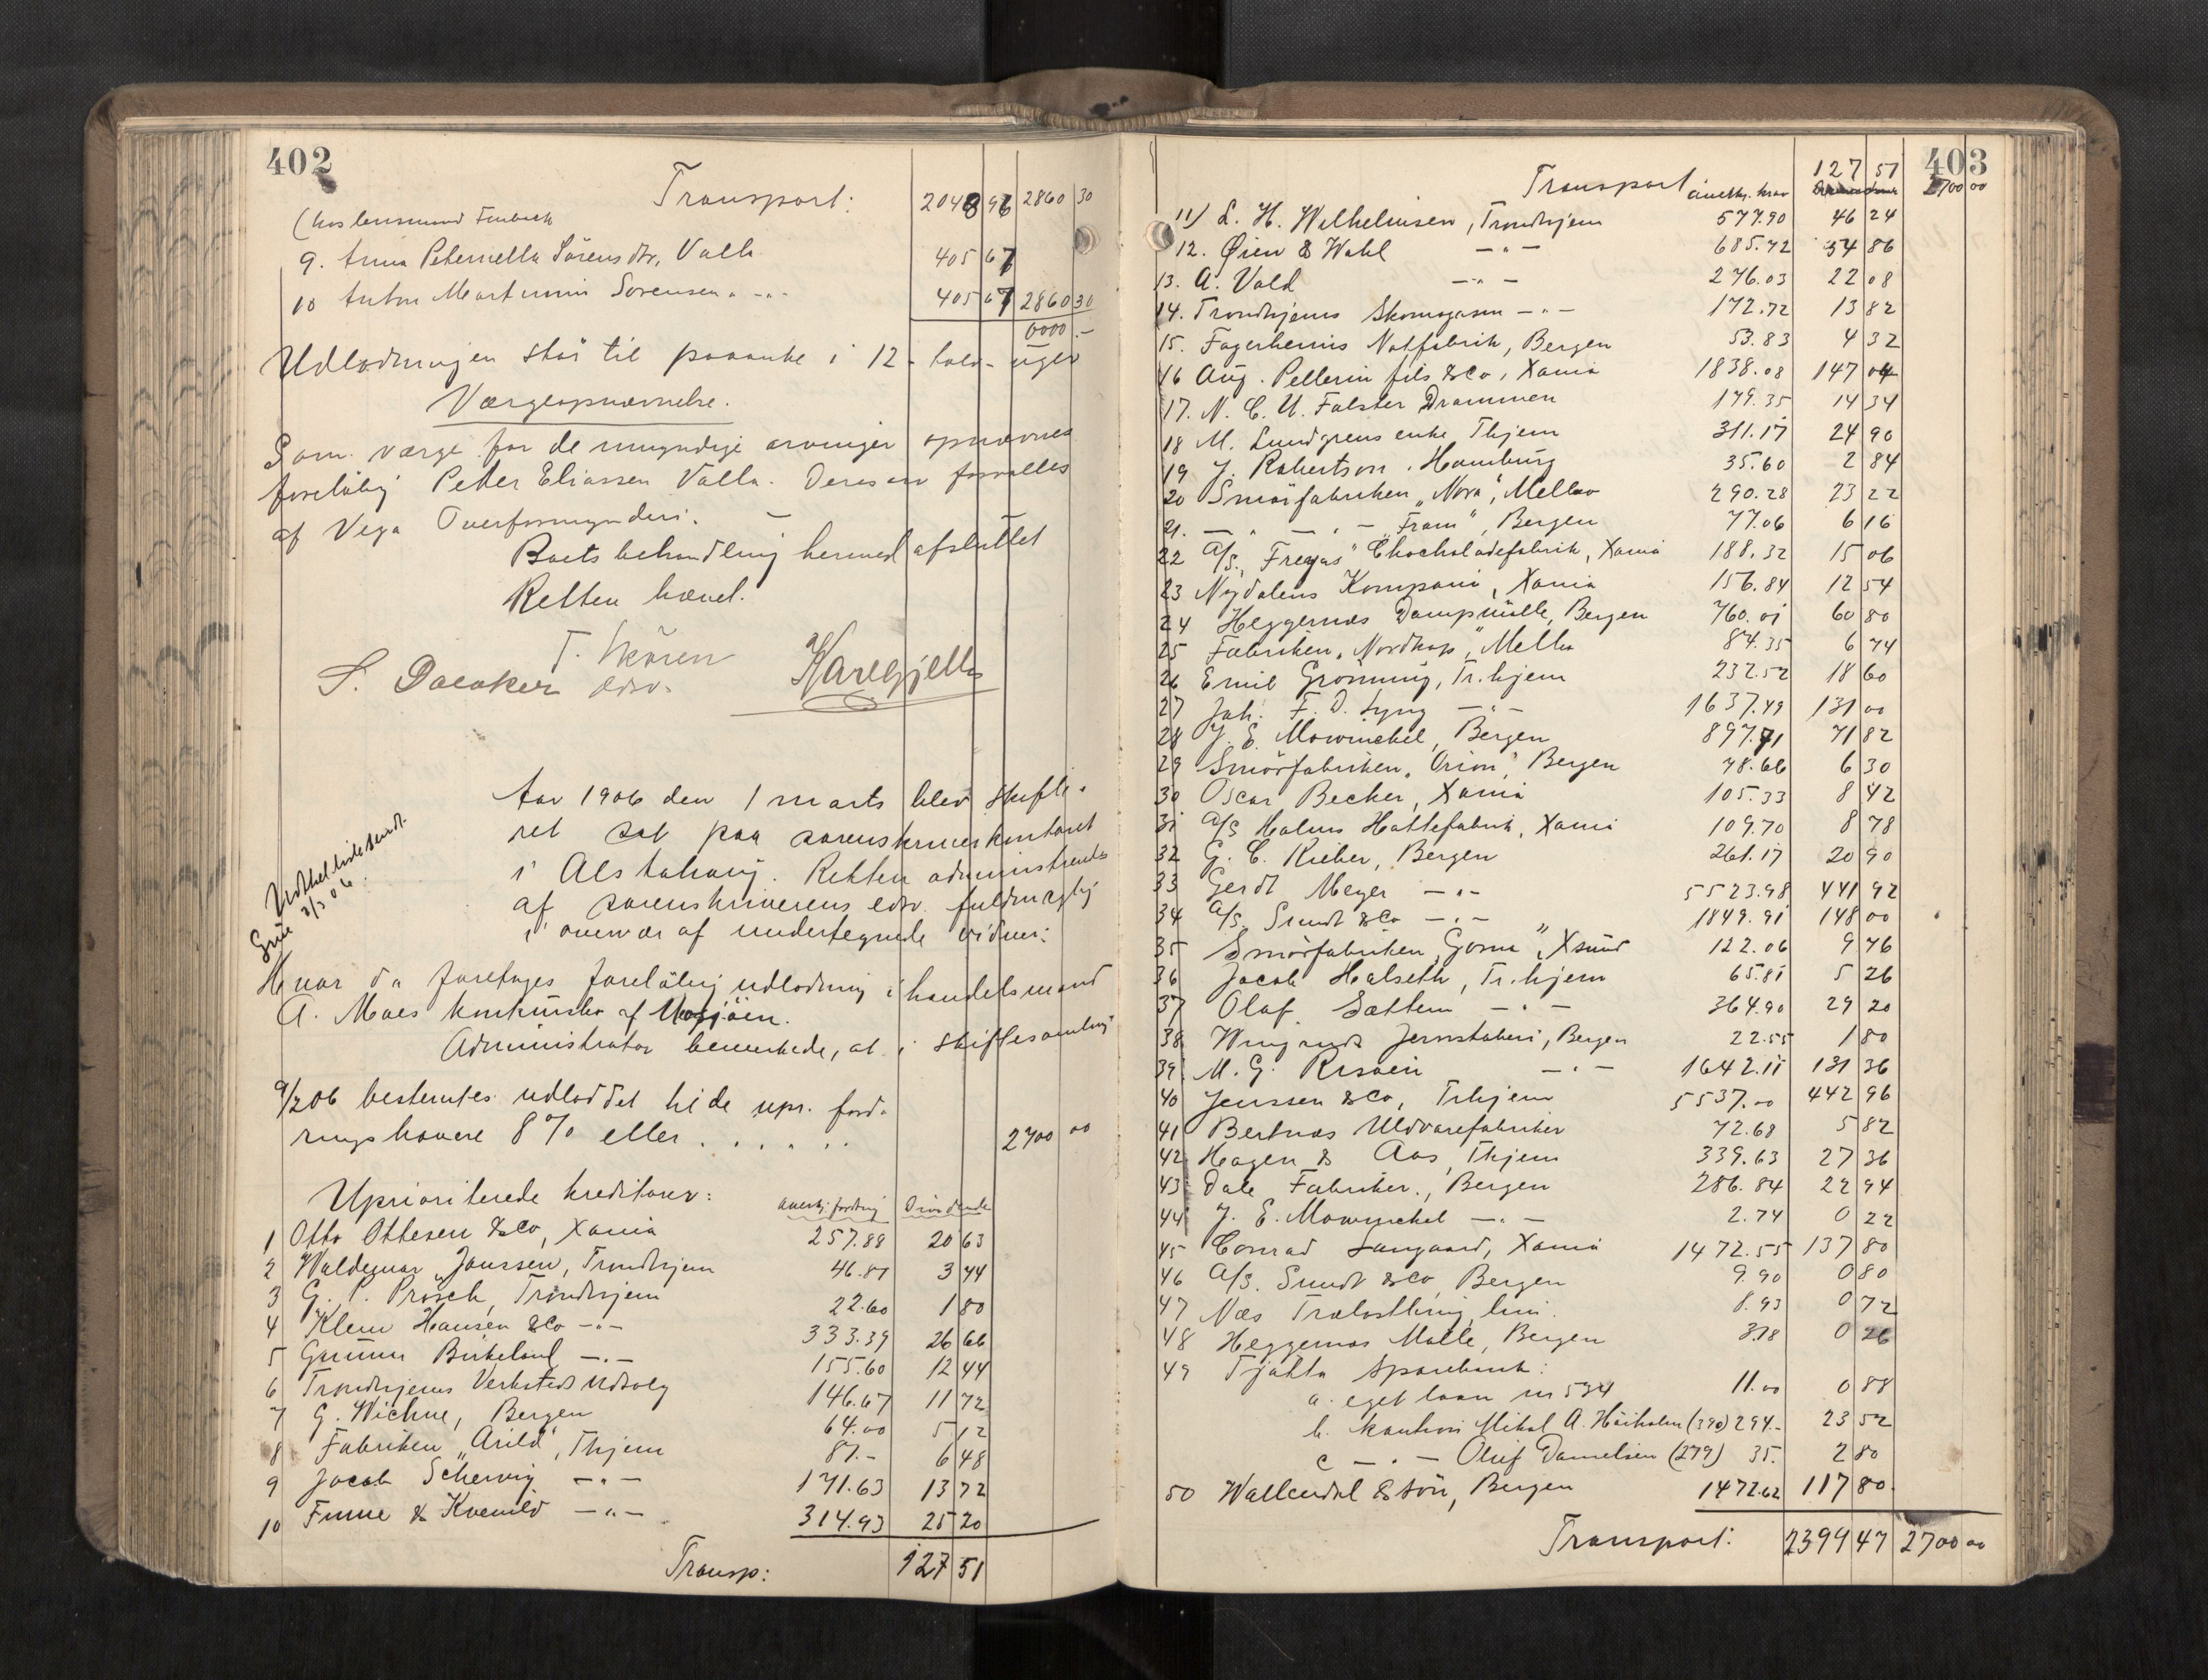 402
Transport: 2048 96 2860 30
(hos lensmand
9. Anna Peternella Sörensdtr, Valla 405 67
10 Anton Martinius Sörensen -"- 405 67 2860 30
0000.-
Udlodningen står til paaanke i 12 - tolv - uger
Værgeopnævnelse.
Som værge for de umyndige arvinger opnævnes
foreløbig Peter Eliassen Valla. Deres arv forvaltes
af Vega Overformynderi. -
Boets behandling hermed afsluttet
Retten hævet.
T. Skören
S. Daeoker edsv. Karl Gjelle
Aar 1906 den 1 marts blev skifte-
ret sat paa sorenskriverkontoret
i Alstahaug. Retten administreredes
af sorenskriverens edsv. fuldmægtig
i overvær af undertegnede vidner:
3/3 06.
Hvor da foretages foreløbig udlodning i handelsmand
A. Moes konkursbo af Mosjöen.
Administrator bemerkede, at i skiftesamling
9/2 06 bestemtes udloddet til de upr. ford-
ringshavere 8% eller . . . . . . 2700 00
Uprioriterede kreditorer: anerkj. fordring Dividende
1 Otto Ottesen & Co, Xania 257.88 20 63
2 Waldemar Janssen, Trondhjem 46.81 3 44
3 G. C. Prösch, Trondhjem 22.60 1 80
4 Klem Hansen & Co -"- 333.39 26 66
5 Gunnar Birkeland -"- 155.60 12 44
6 Trondhjems Verksteds Udsalg 146.67 11 72
7 G. Wichne, Bergen 64.00 5 12
8 Fabriken "Arild", Thjem 81.- 6 48
9 Jacob Schervig -"- 171.63 13 72
10 Finne & Kvenild -"- 314.93 25 20
Transp: 127 51
403
Transport anerkj. krav 127 51 2700 00
11) L. H. Wilhelmsen, Trondhjem 577.90 46 24
12. Øien & Wahl -"- 685.72 54 86
13. A. Vold -"- 276.03 22 08
14. Trondhjems Skomagasin -"- 172.72 13 82
15. Fagerheims Notfabrik, Bergen 53.83 4 32
16 Aug. Pellerin fils & Co, Xania 1838.08 147 04
17. N. C. U. Falster Drammen 179.35 14 34
18 M. Lundgrens enke Thjem 311.17 24 90
19 J. Robertson, Hamburg 35.60 2 84
20 Smörfabriken "Nora", Melbo 290.28 23 22
21. -"- -"- "Fram", Bergen 77.06 6 16
22 A/S. "Freyas" Chocholadefabrik, Xania 188.32 15 06
23 Nydalens Kompani, Xania 156.84 12 54
24 Heggernes Dampmölle, Bergen 760.01 60 80
25 Fabriken "Nordkap", Melbo 84.35 6 74
26 Emil Grönning, Tr.hjem 232.52 18 60
27 Joh. F. D. Lyng -"- 1637.49 131 00
28 J. E. Mowinckel, Bergen 897.71 71 82
29 Smörfabriken "Orion", Bergen 78.66 6 30
30 Oscar Becker, Xania 105.33 8 42
31 A/S Holms Hattefabrik, Xania 109.70 8 78
32 G. C. Rieber, Bergen 261.17 20 90
33 Gerdt Meyer -"- 5523.98 441 92
34 A/S. Sundt & Co -"- 1849.91 148 00
35 Smörfabriken "Goma", Xsund 122.06 9 76
36 Jacob Halseth, Tr.hjem 65.81 5 26
37 Olaf Sættem -"- 364.90 29 20
38 Wingaards Jernstøberi, Bergen 22.55 1 80
39 M. G. Risöen -"- 1642.11 131 36
40 Jenssen & Co, Trhjem 5537.00 442 96
41 Bertnæs Uldvarefabriker 72.68 5 82
42 Hagen & Aas, Thjem 339.63 27 36
43 Dale Fabriker., Bergen 286.84 22 94
44 J. E. Mowinckel -"- 2.74 0 22
45 Conrad Langaard, Xania 1472.55 137 80
46 A/S. Sundt & Co, Bergen 9.90 0 80
47 Næs Træ 8.93 0 72
48 Heggernæs Mølle, Bergen 3.18 0 26
49 Tjøtta Sparebank:
a. eget laan nr 534 11.00 0 88
b. kaution Mikal A. Høiholm (390) 294.- 23 52
c -"- Oluf Danielsen (279) 35. 2 80
50 Wallendal & Sön, Bergen 1472.62 117 80.
Transport: 2399 47 2700 00